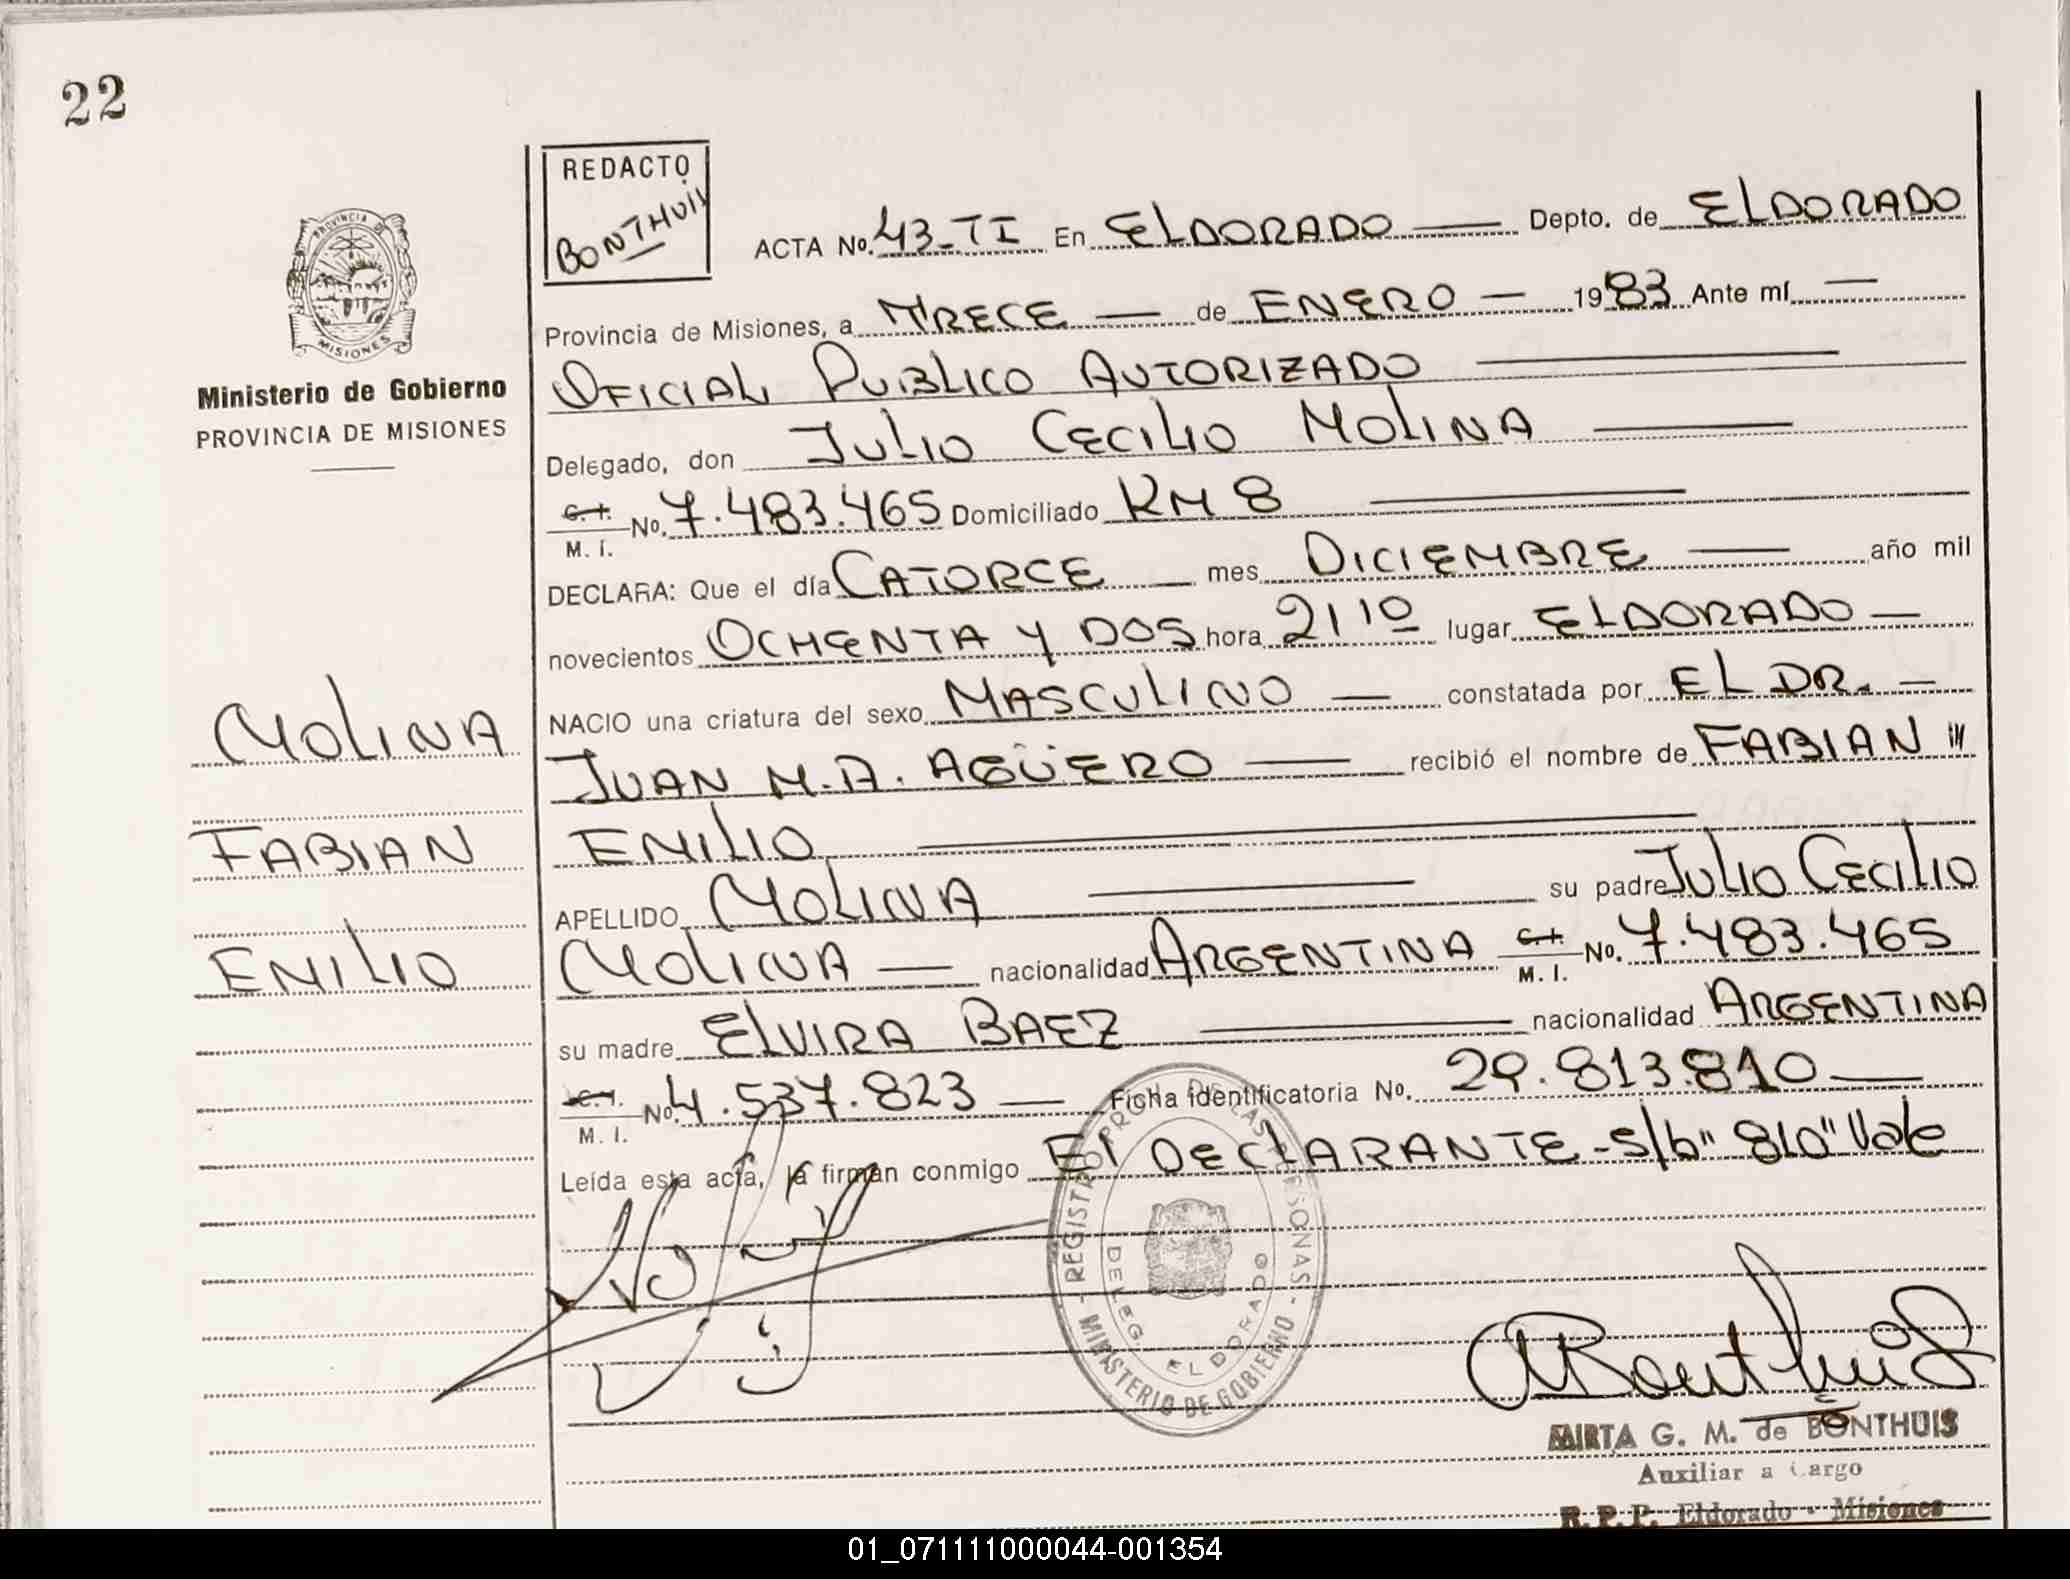 22
REDACTO
BONTHUIS
ACTA No. 43-TI En ELDORADO — Depto. de ELDORADO
Provincia de Misiones, a TRECE — de ENERO — 1983 Ante mí —
OFICIAL PUBLICO AUTORIZADO —
Delegado, don JULIO CECILIO MOLINA —
C. I.
M. I. No. 7.483.465 Domiciliado KM 8 —
DECLARA: Que el día CATORCE — mes DICIEMBRE — año mil
novecientos OCHENTA Y DOS hora 21 10 lugar ELDORADO —
NACIO una criatura del sexo MASCULINO — constatada por EL DR. —
JUAN M.A. AGÜERO — recibió el nombre de FABIAN
EMILIO —
APELLIDO MOLINA — su padre JULIO CECILIO
MOLINA — nacionalidad ARGENTINA C. I.
M. I. No. 7.483.465
su madre ELVIRA BAEZ — nacionalidad ARGENTINA
C. I.
M. I. No. 4.537.823 — Ficha identificatoria No. 29.813.810 —
Leída esta acta, la firman conmigo El DECLARANTE - s/b "810" Vale
PROVINCIA DE
MISIONES
Ministerio de Gobierno
PROVINCIA DE MISIONES
MOLINA
FABIAN
EMILIO
REGISTRO PROV. DE LAS PERSONAS - MINISTERIO DE GOBIERNO -
DELEG. ELDORADO
Bonthuis
MIRTA G. M. de BONTHUIS
Auxiliar a Cargo
R. P. P. Eldorado - Misiones
01_071111000044-001354